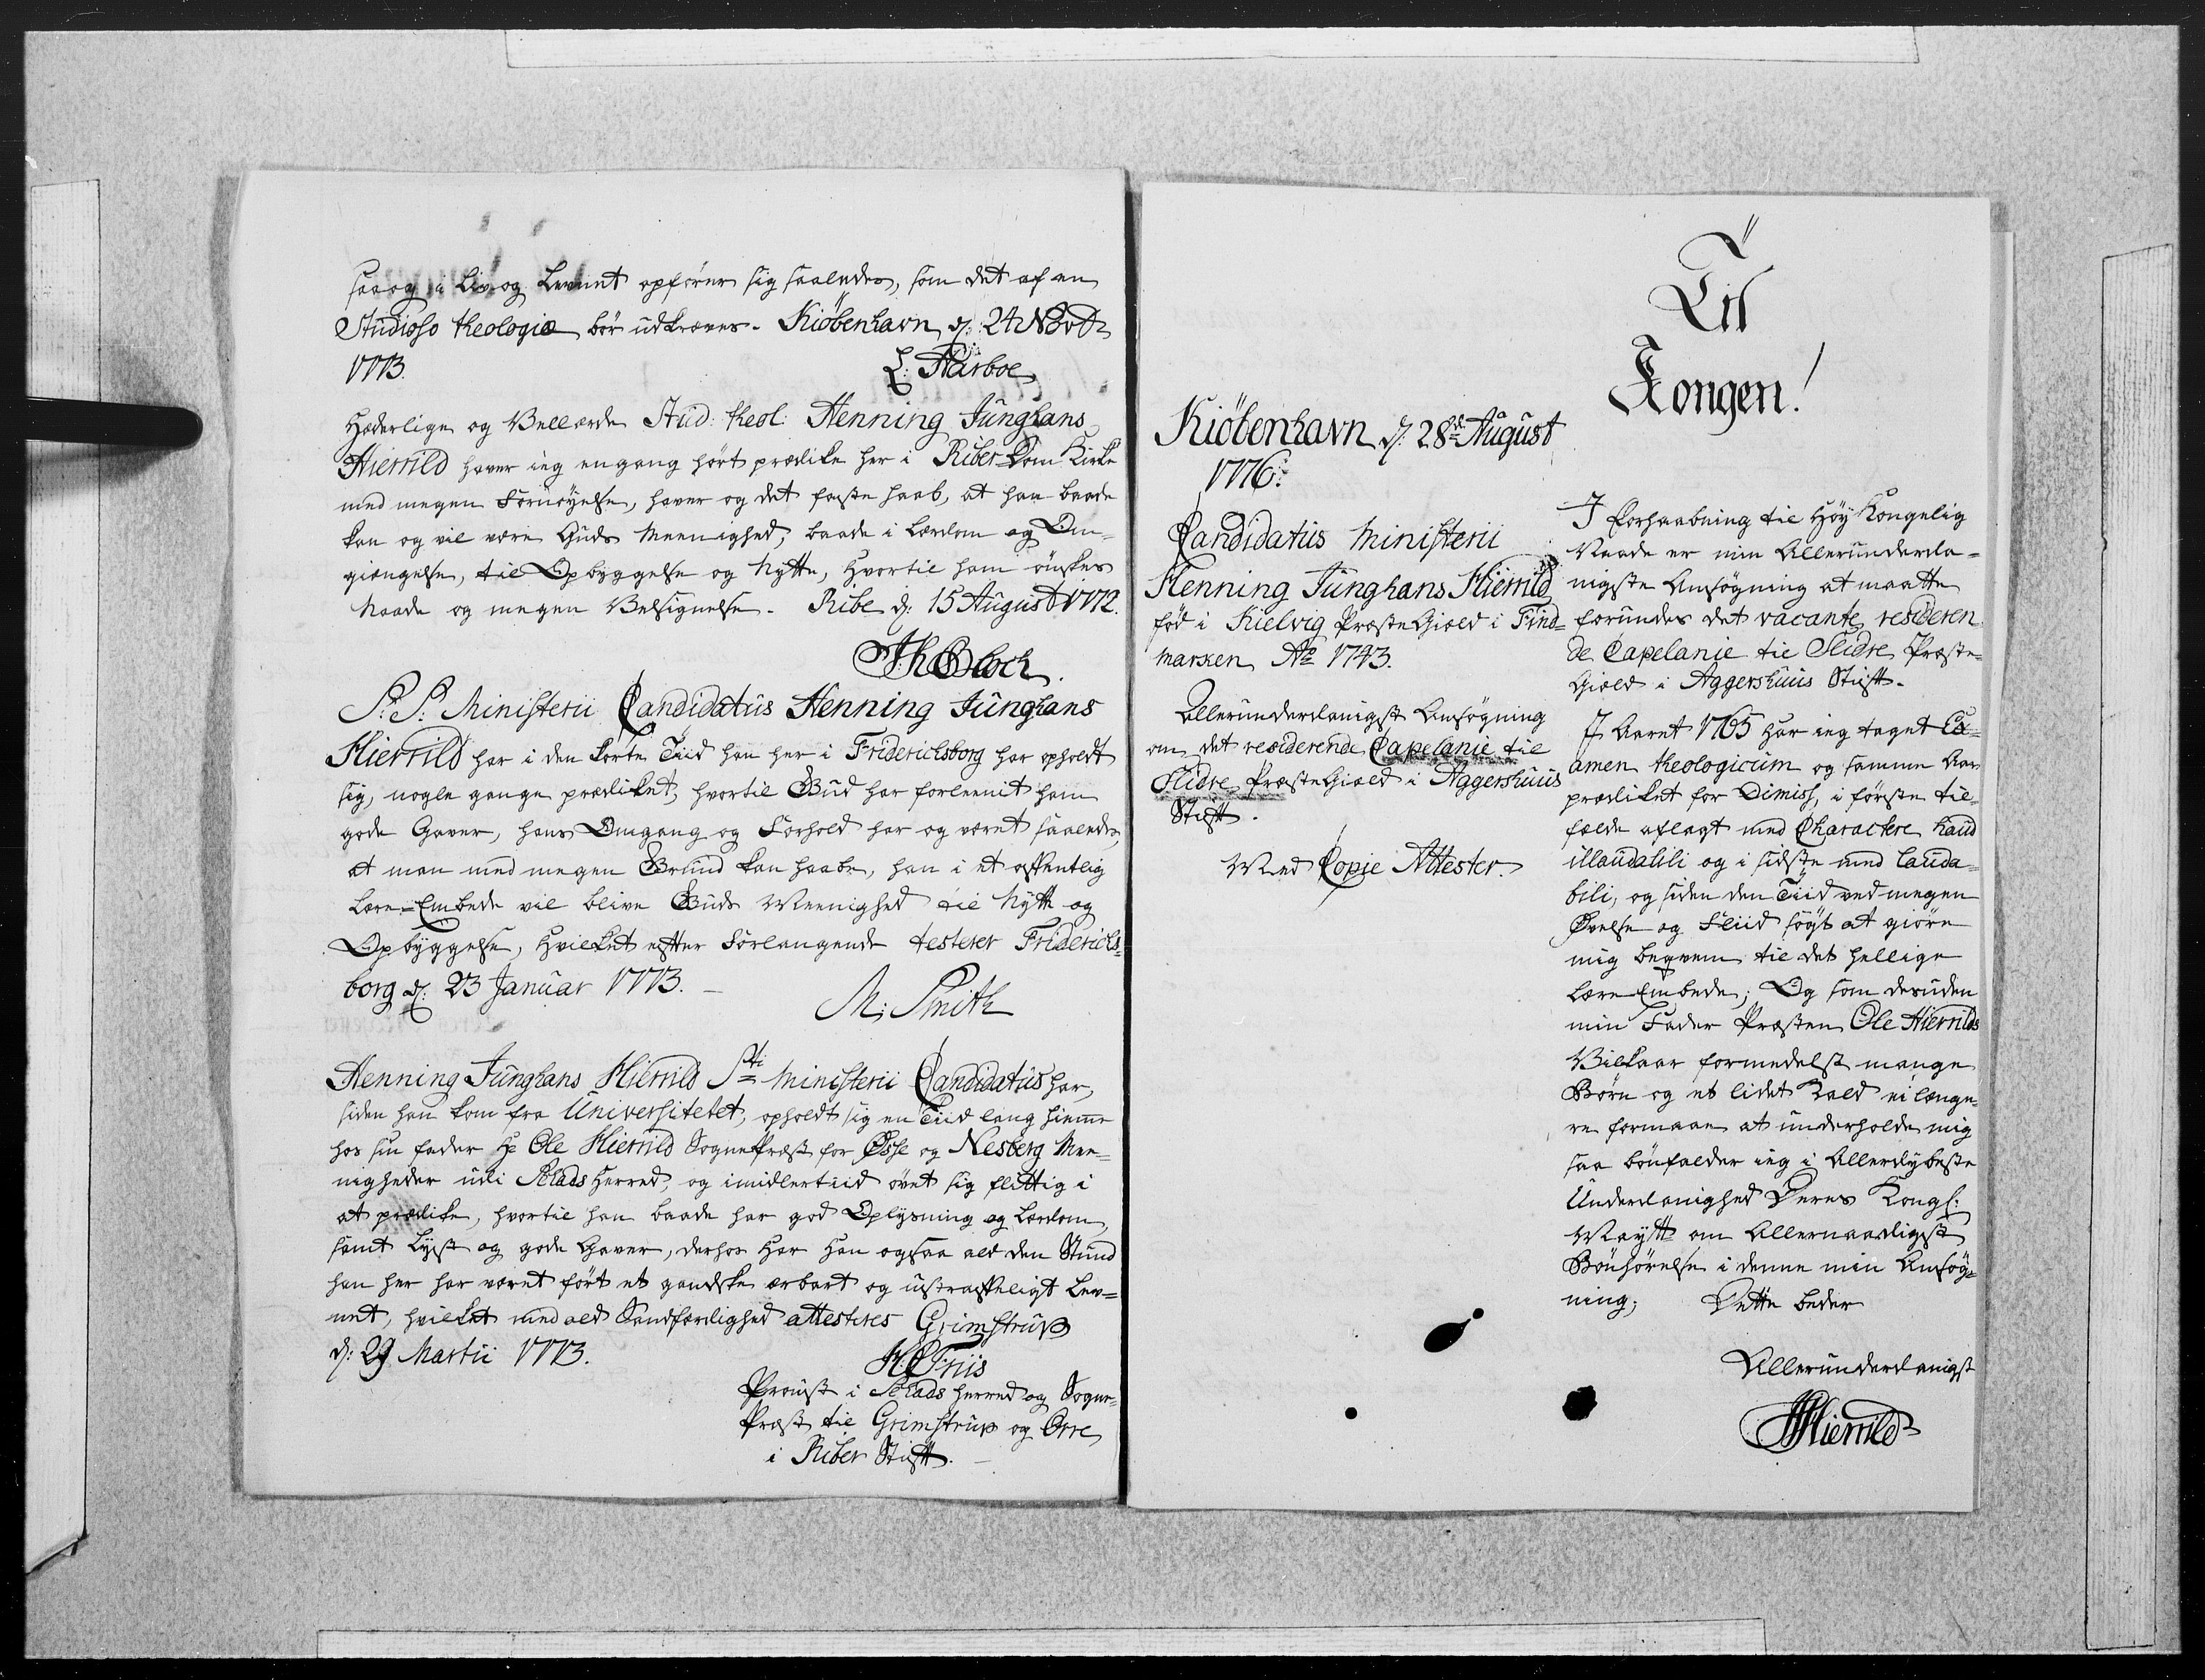 saa og i Liv og Levnet opfører sig saaledes, som det af en
Studioso theologiæ bør udkræves. Kiøbenhavn d: 24 Novbr
1773.
L: Harboe
Hæderlige og Vellærde Stud: theol: Henning Junghans
Hierrild haver ieg engang hørt prædike her i Riber Dom Kirke
med megen Fornøyelse, haver og det faste haab, at han baade
kan og vil være Guds Meenighed, baade i Lærdom og Om-
giængelse, til Opbyggelse og Nytte, hvortil ham ønskes
Naade og megen Velsignelse. Ribe d: 15 August 1772.
Th Bloch.
S: S: Ministerii Candidatus Henning Junghans
Hierrild har i den korte Tiid han her i Friderichsborg har opholdt
sig, nogle gange prædiket, hvortil Gud har forleenit ham
gode Gaver, hans Omgang og Forhold har og været saaledes,
at man med megen Grund kan haabe, han i et offentlig
Lære-Embede vil blive Guds Meenighed til Nytte og
Opbyggelse, hvilket efter Forlangende testerer Friderichs-
borg d: 23 Januar 1773.
M: Smith
Henning Junghans Hierrild Sti Ministerii Candidatus har,
siden han kom fra Universitetet, opholdt sig en Tiid lang hiemme
hos sin fader Hr Ole Hierrild SognePræst for Øsse og Nesberg Mee-
nigheder udi Skads Herred, og imidlertiid øvet sig flittig i
at prædike, hvortil han baade har god Oplysning og Lærdom,
samt Lyst og gode Gaver, derhos har han ogsaa ald den Stund
han her har været ført et gandske ærbart og ustraffeligt Lev-
net, hvilket med ald Sandfærdighed attesteres Grimstrup
d: 29 Martii 1773.
H. C Friis
Proust i Skads Herred og Sogne-
Præst til Grimstrup og Orre
i Riber Stift.
Til
Kongen!
Kiøbenhavn d: 28de August
1776.
Candidatus Ministerii
Henning Junghans Hierrild
fød i Kielvig PræsteGield i Find-
marken Ao 1743.
Allerunderdanigst Ansøgning
om det residerende Capelanie til
Slidre PræsteGield i Aggershuus
Stift.
Med Copie Attester.
I Forhaabning til Høy Kongelig
Naade er min Allerunderda-
nigste Ansøgning at maatte
forundes det vacante resideren
de Capelanie til Slidre Præste-
Gield i Aggershuus Stift.
I Aaret 1765 har ieg taget Ex-
amen theologicum og samme Aar
prædiket for Dimiss, i første til-
fælde aflagt med Charactere haud
illaudabili og i sidste med lauda-
bili, og siden den Tiid ved megen
Øvelse og Fliid søgt at giøre
mig beqvem til det hellige
Lære-Embede; Og som desuden
min Fader Præsten Ole Hierrilds
Vilkaar formedelst mange
Børn og et lidet Kald ei længe-
re formaae at underholde mig
saa bønfalder ieg i Allerdybeste
Underdanighed Deres Kongl:
Mayt om Allernaadigst
Bønhørelse i denne min Ansøg-
ning; Dette beder
Allerunderdanigst
HJHierrild